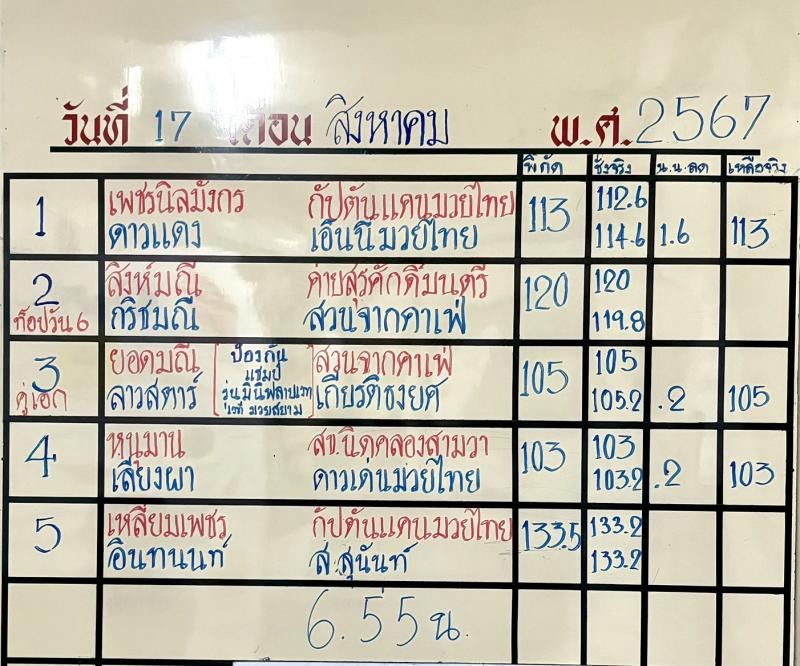 วันที่ 17 เดือน สิงหาคม พ.ศ. 2567
พิกัด ชั่งจริง น.น.ลด เหลือจริง
1 เพชรนิลมังกร กัปตันแคนมวยไทย 113 112.6
ดาวแดง เอ็นนี่มวยไทย 114.6 1.6 113
2 สิงห์มณี ค่ายสุรศักดิ์มนตรี 120 120
ท็อปวัน 6 กริชมณี สวนจากคาเฟ่ 119.8
3 ยอดมณี ป้องกัน สวนจากคาเฟ่ 105 105
แชมป์
คู่เอก ลาวสตาร์ รุ่นมินิฟลายเวท เกียรติธงยศ 105.2 .2 105
เวที มวยสยาม
4 หนุมาน สจ.นิดคลองสามวา 103 103
เลียงผา ดาวเด่นมวยไทย 103.2 .2 103
5 เหลี่ยมเพชร กัปตันแคนมวยไทย 133.5 133.2
อินทนนท์ ส.สุนันท์ 133.2
6.55 น.